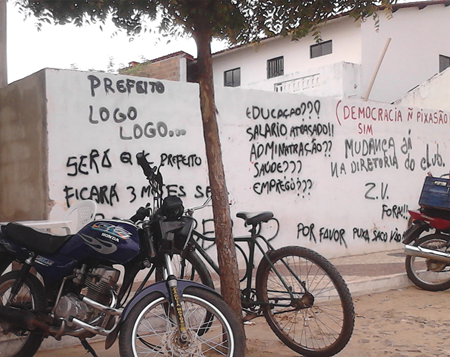 PREFEITO
LOGO
LOGO...
SERÁ QE PREFEITO
FICARÁ 3 MESES SE
EDUCAÇÃO???
SALARIO ATRASADO!!
ADMINATRAÇÃO??
SAÚDE???
EMPREGO???
(DEMOCRACIA Ñ PIXASÃO
SIM
MUDANÇA JÁ
NA DIRETORIA do club.
Z.V.
FORA!!
POR FAVOR PUXA SACO NÃO
HONDA